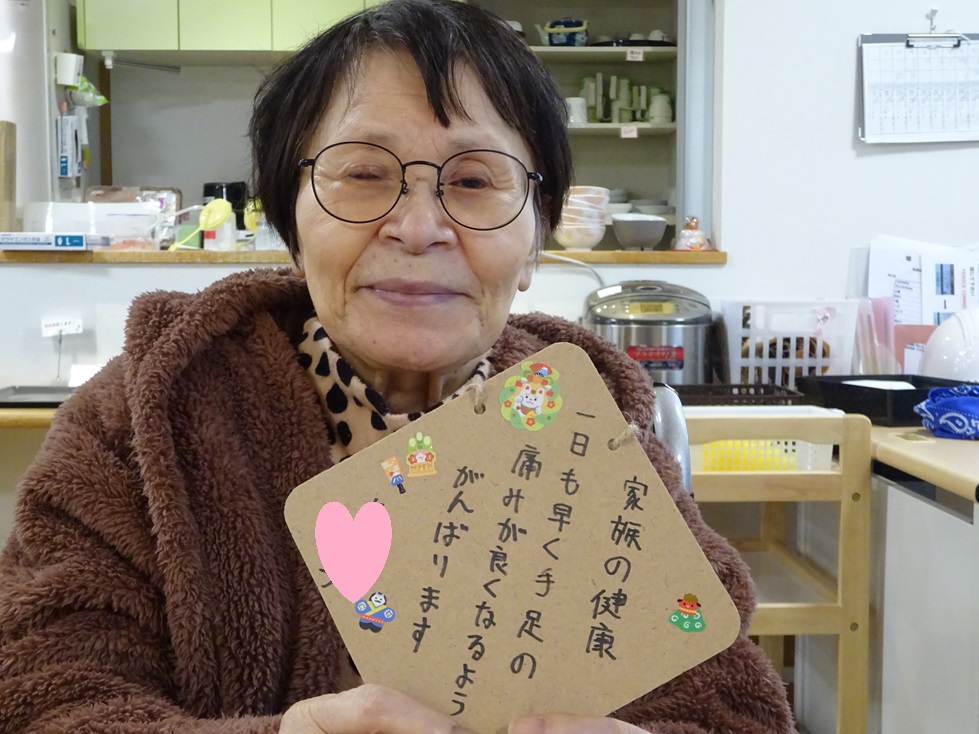 家族の健康
一日も早く手足の
痛みが良くなるよう
がんばります